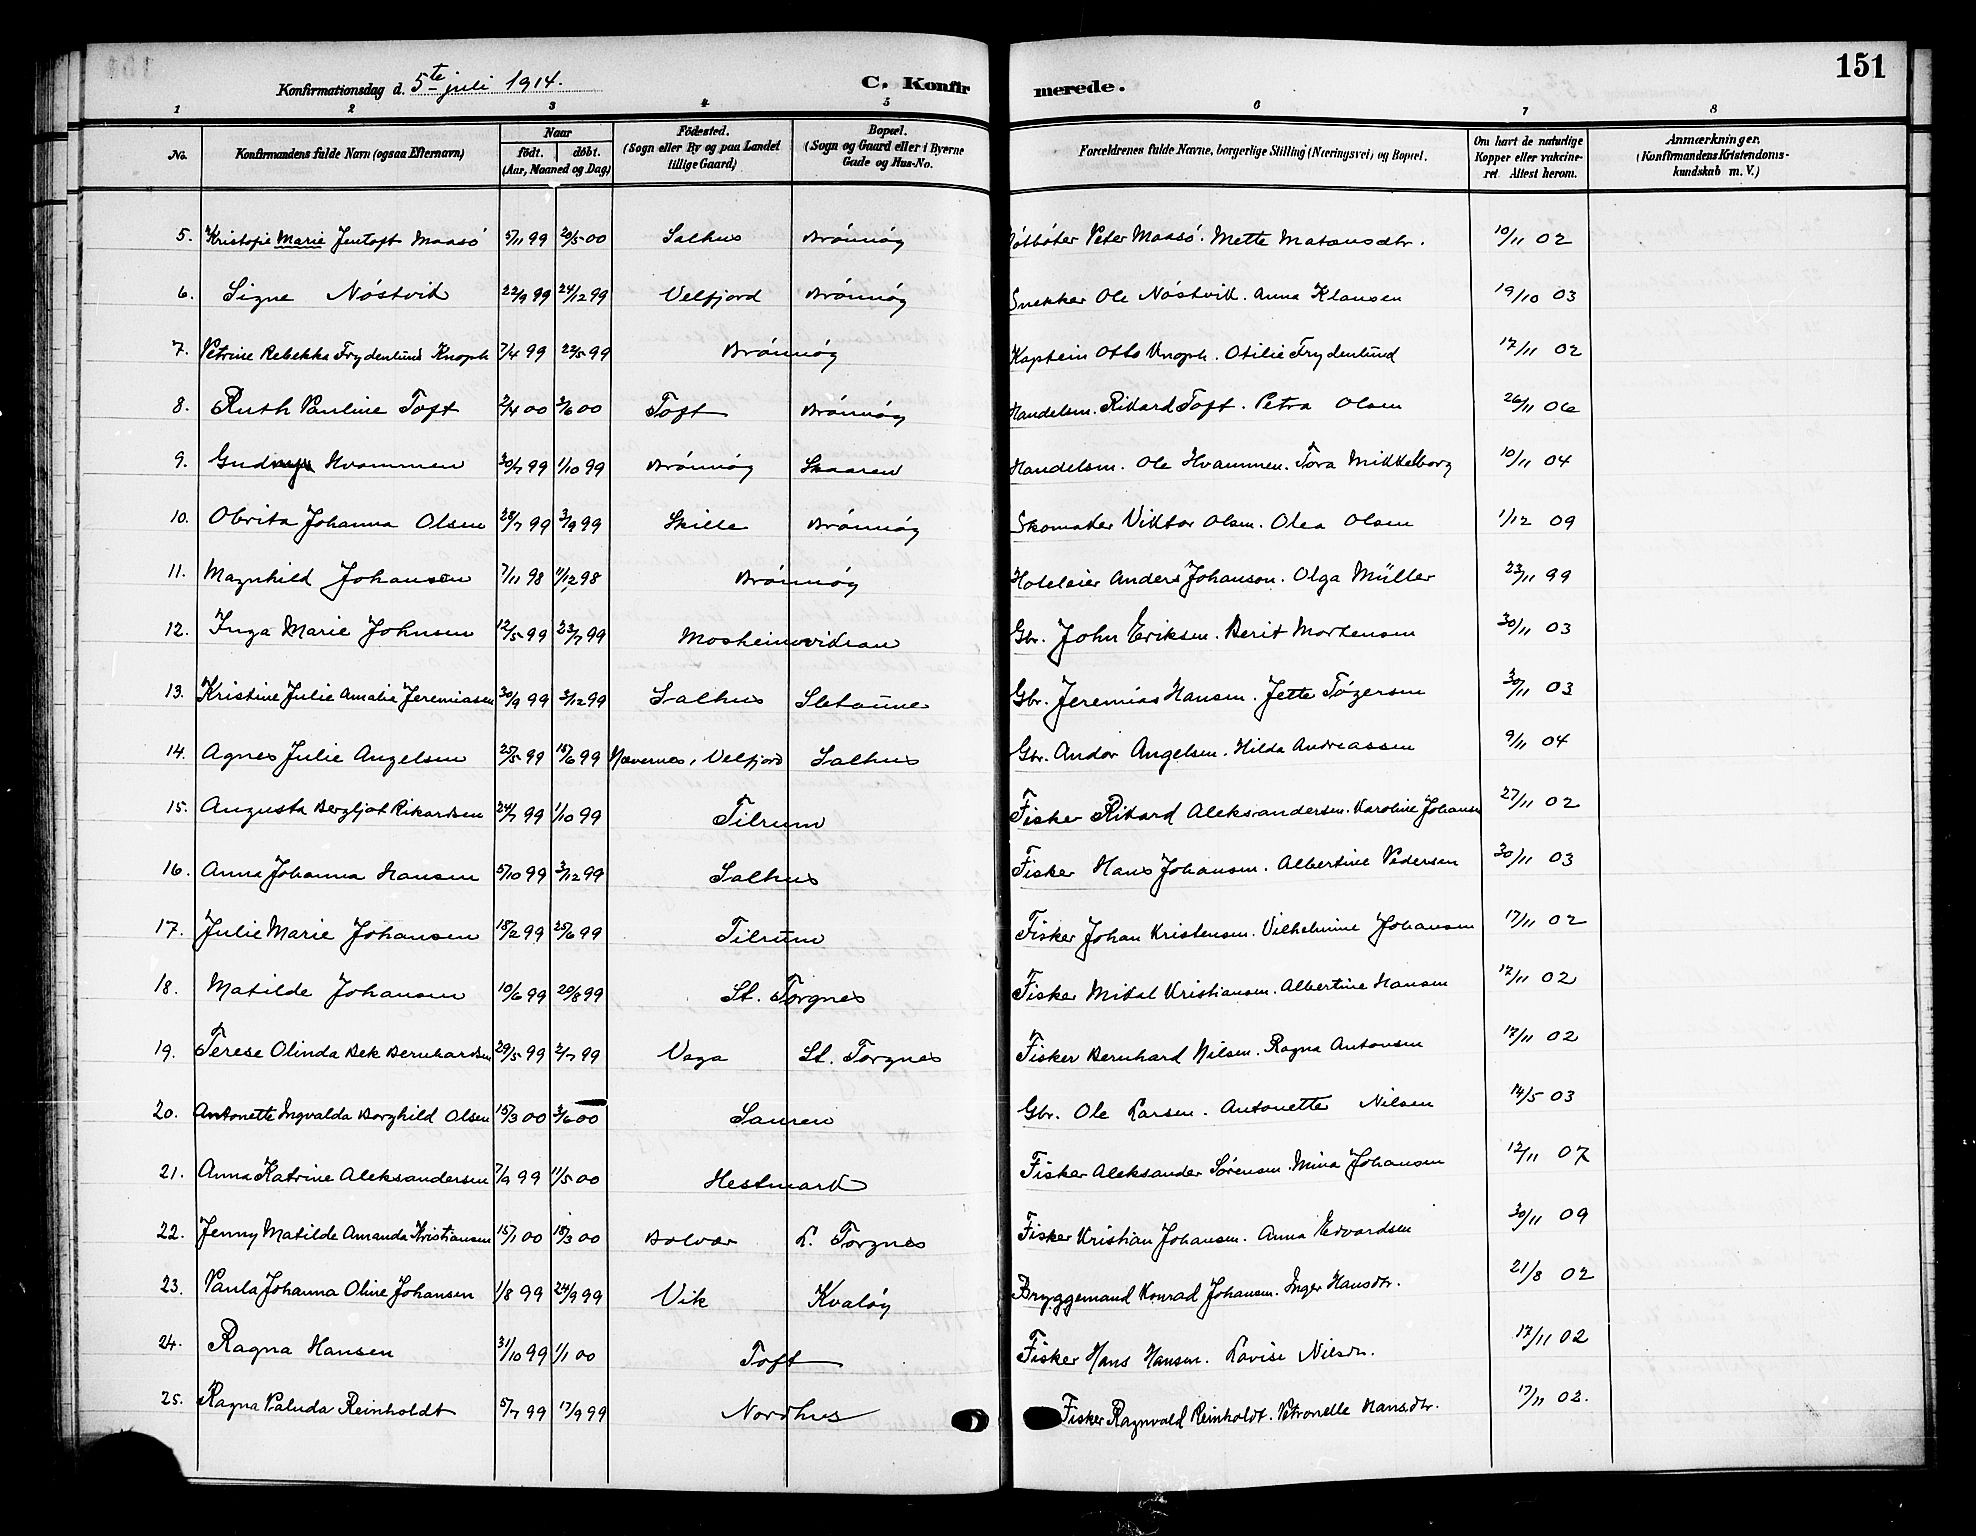 151
Konfirmationsdag d. 5te juli 1914.
C. Konfirmerede.
1 2 3 4 5 6 7 8
No. Konfirmandens fulde Navn (ogsaa Efternavn) Naar födt. döbt. (Aar, Maaned og Dag) Födested. (Sogn eller By og paa Landet tillige Gaard) Bopæl. (Sogn og Gaard eller i Byerne Gade og Hus-No. Forældrenes fulde Navne, borgerlige Stilling (Næringsvei) og Bopæl. Om havt de naturlige Kopper eller vakcineret. Attest herom. Anmærkninger. (Konfirmandens Kristendomskundskab m. V.)
5. Kristofie Marie Jentoft Maasö 5/11 99 20/5 00 Salhus Brönnöy Peter Maasö. Mette Matansdtr. 10/11 02
6. Signe Nöstvik 22/9 99 24/12 99 Velfjord Brönnöy Snekker Ole Nöstvik. Anna Klausen 19/10 03
7. Petrine Rebekka Frydenlund Knoph 7/4 99 22/5 99 Brönnöy Kaptein Otto Knoph. Otilie Frydenlund 17/11 02
8. Ruth Pauline Toft 2/4 00 3/6 00 Toft Brönnöy Handelsm. Rikard Toft. Petra Olsen 26/11 06
9. Gudny Hvammen 30/7 99 1/10 99 Brönnöy Skaaren Handelsm. Ole Hvammen. Tora Mikkelborg 10/11 04
10. Obrita Johanna Olsen 28/7 99 3/9 99 Skille Brönnöy Skomaker Viktor Olsen. Olea Olsen 1/12 09
11. Magnhild Johansen 7/11 98 11/12 98 Brönnöy Hoteleier Anders Johanson. Olga Müller 23/11 99
12. Inga Marie Johnsen 12/5 99 23/7 99 Mosheimvidran Gbr. John Eriksen. Berit Mortensen 30/11 03
13. Kristine Julie Amalie Jeremiassen 30/9 99 3/12 99 Salhus Sletaune Gbr. Jeremias Hansen. Jette Tögersen 30/11 03
14. Agnes Julie Angelsen 25/5 99 18/6 99 Nævernes, Velfjord Salhus Gbr. Andor Angelsen. Hilda Andreassen 9/11 04
15. Augusta Bergljot Rikardsen 24/7 99 1/10 99 Tilrum Fisker Rikard Aleksandersen. Karoline Johansen 27/11 02
16. Anna Johanna Hansen 5/10 99 3/12 99 Salhus Fisker Hans Johansen. Albertine Pedersen 30/11 03
17. Julie Marie Johansen 18/2 99 25/6 99 Tilrum Fisker Johan Kristensen. Vilhelmine Johansen 17/11 02
18. Matilde Johansen 10/6 99 20/8 99 St. Torgnes Fisker Mikal Kristiansen. Albertine Hansen 17/11 02
19. Terese Olinda Bek Bernhardsen 29/5 99 2/7 99 Vega St. Torgnes Fisker Bernhard Nilsen. Ragna Antonsen 17/11 02
20. Antonette Ingvalda Borghild Olsen 15/3 00 3/6 00 Sauren Gbr. Ole Larsen. Antonette Nilsen 14/5 03
21. Anna Katrine Aleksandersen 7/9 99 11/5 00 Hestmark Fisker Aleksander Sörensen. Mina Johansen 12/11 07
22. Jenny Matilde Amanda Kristiansen 15/1 00 18/3 00 Bolvær L. Torgnes Fisker Kristian Johansen. Anna Edvardsen 30/11 09
23. Paula Johanna Oline Johansen 1/8 99 24/9 99 Vik Kvalöy Bryggemand Konrad Johansen. Inger Hansdtr. 21/8 02
24. Ragna Hansen 31/10 99 1/1 00 Toft Fisker Hans Hansen. Lovise Nilsdr. 17/11 02
25. Ragna Paluda Reinholdt 5/7 99 17/9 99 Nordhus Fisker Ragnvald Reinholdt. Petronelle Hansdtr. 17/11 02.